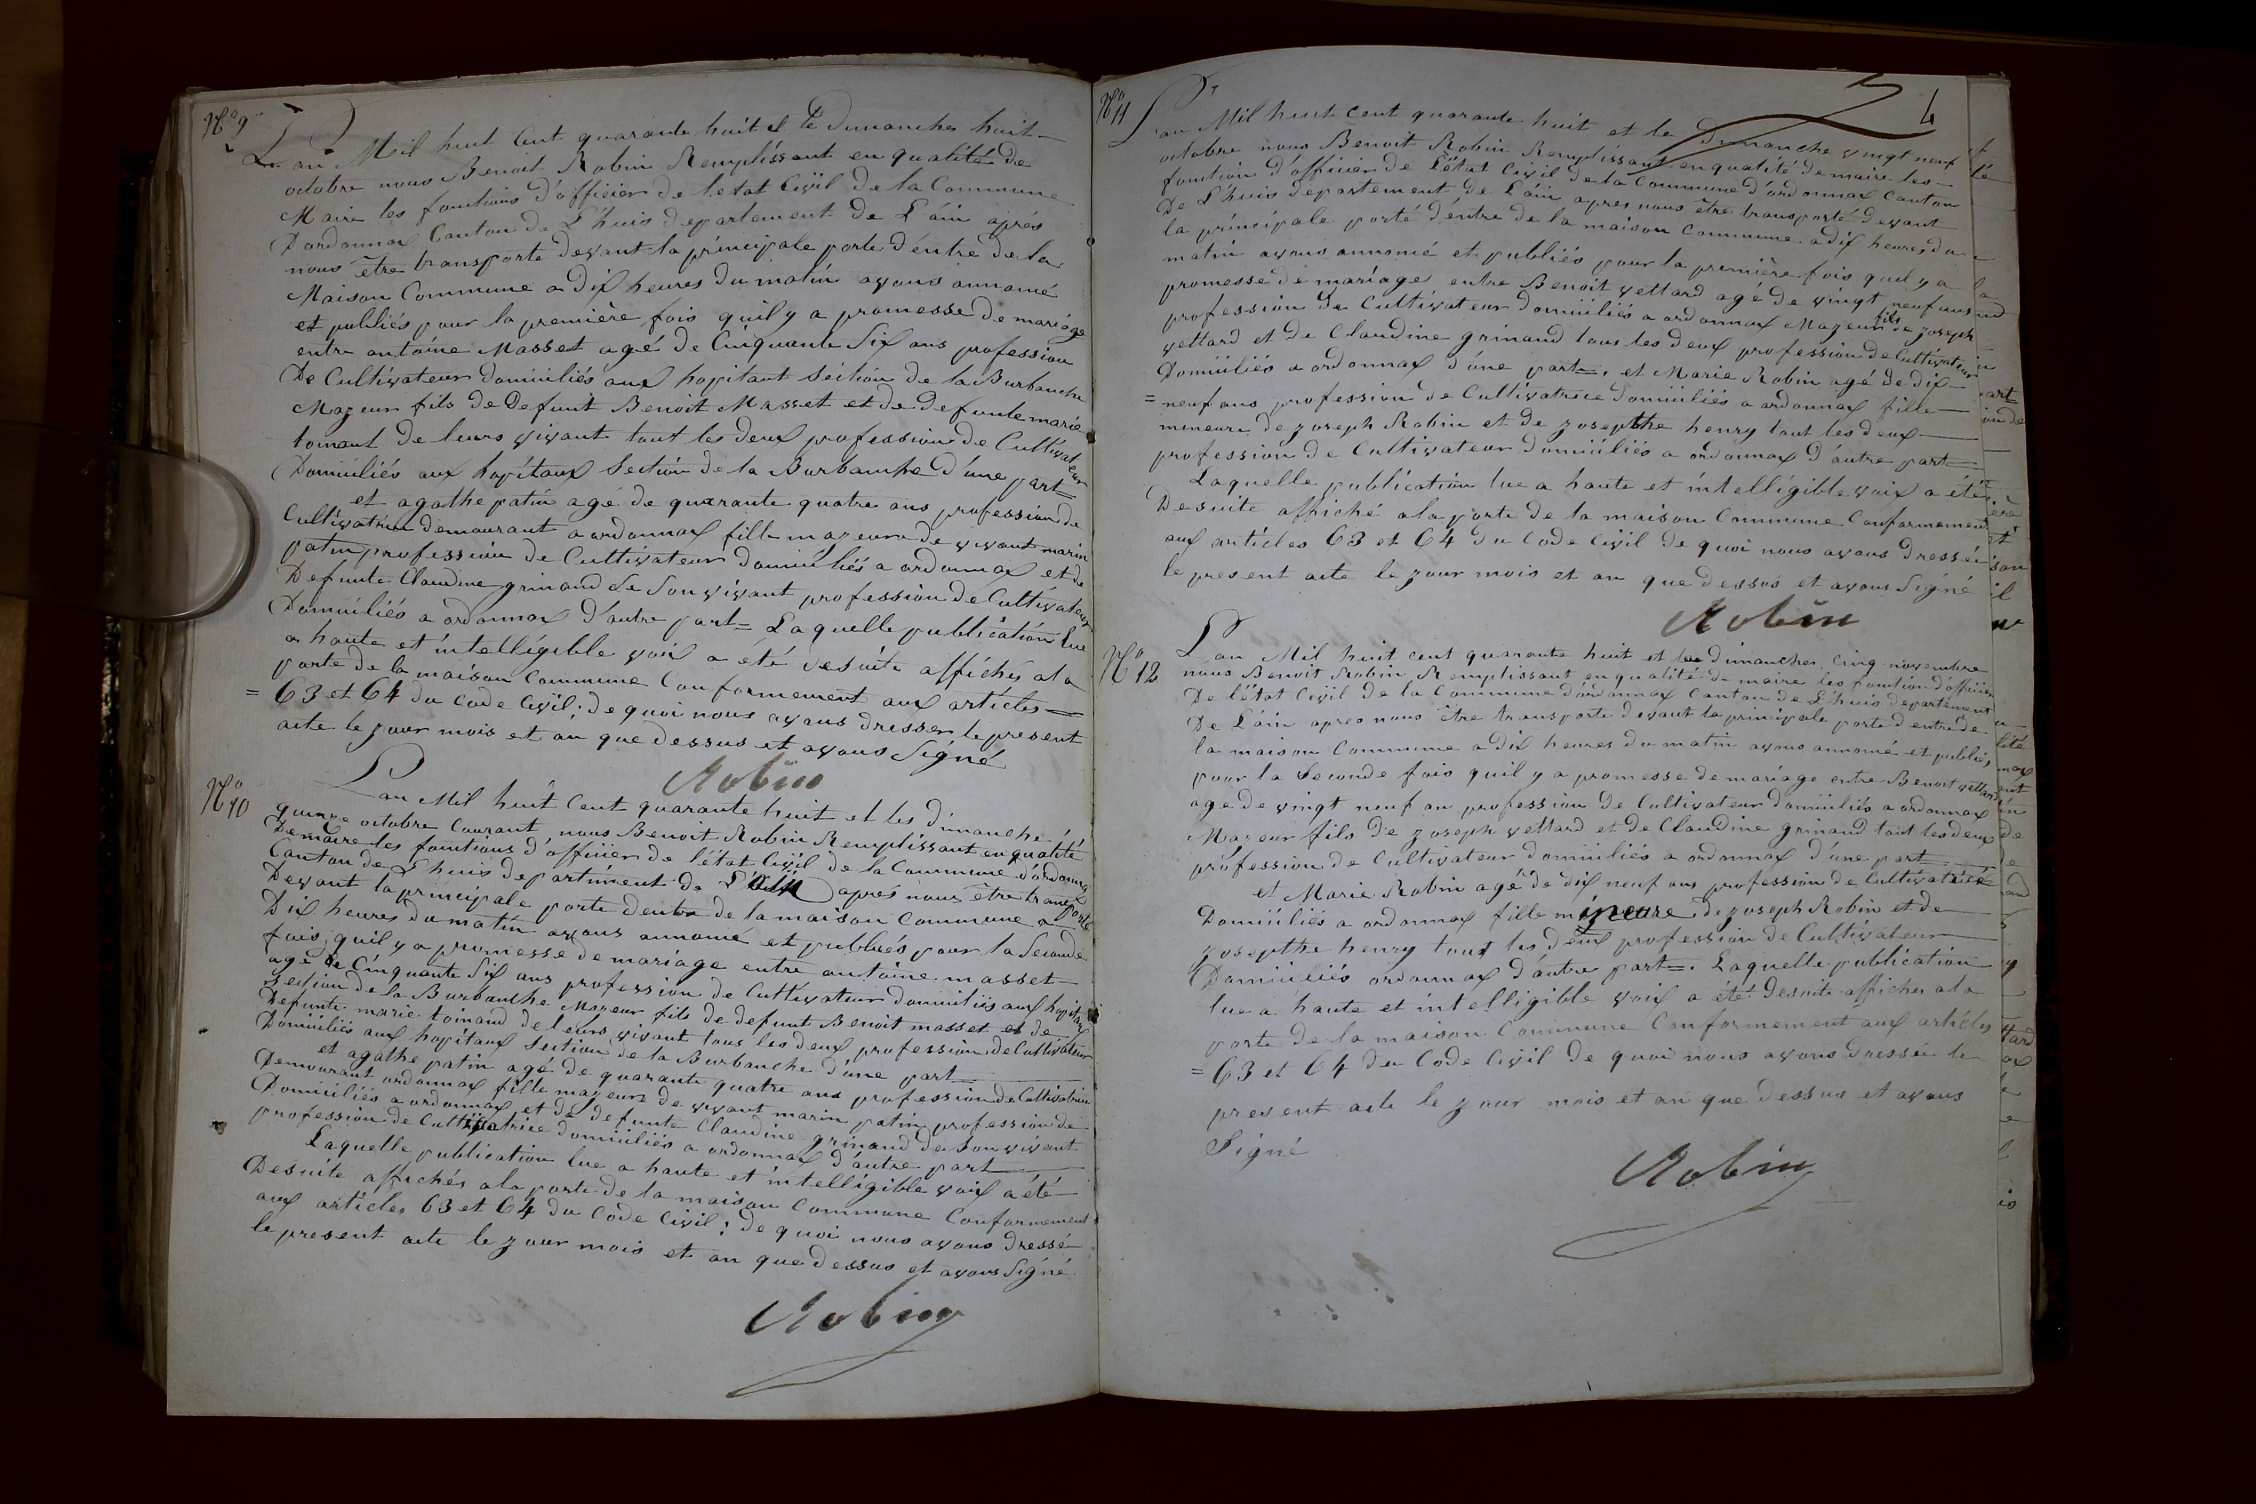 N° 9
L'an Mil huit Cent quarante huit et le dimanches huit
octobre nous Benoit Robin Remplissant en qualité de
Maire les fonctions d'officier de l'etat Civil de la Commune
D'ordonnax Canton de L'huis departement de L'ain après
nous être transporté devant la principale porte d'éntre de la
Maison Commune a Dix heures du matin avons annoncé
et publiés pour la première fois quil y a promesse de mariage
entre antoine Masset agé de Cinquante Six ans profession
De Cultivateur domiciliés aux hopitaut Section de la Burbanche
Mazeur fils de Defunt Benoit Masset et de defunte marie
toinant de leurs vivant tout les deux profession de Cultivateur
Domiciliés aux hopitaux Section de la Burbanche d'une part=
et agathe patin agé de quarante quatre ans profession de
Cultivatrice demeurant a ordonnax fille mazeure de vivant marin
patin profession de Cultivateur domiciliés a ordonnax et de
Defunte Claudine grinand de Son vivant profession de Cultivateur
Domiciliés a ordonnax d'autre part= Laquelle publication lue
a haute et intelligible voix a été desuite affichés a la
porte de la maison Commune Conformement aux articles
= 63 et 64 du Code Civil; de quoi nous avons dresser le present
acte le zour mois et an que dessus et avons Signé
Robin
N° 10
L'an Mil huit Cent quarante huit et les dimanche
quinze octobre Courant, nous Benoit Robin Remplissant en qualité
De maire les fonctions d'officier de l'état Civil de la Commune d'ordonnax
Canton de L'huis departiment de L'ain après nous être transporté
Devant la principale porte dentre de la maison Commune a
Dix heures du matin avons annoncé et publiés pour la Seconde
fois, quil y a promesse de mariage entre antoine masset
agé de Cinquante Six ans profession de Cultivateur domiciliés aux hopitaux
Section de la Burbanche Mazeur fils de defunt Benoit masset et de
Defunte marie toinand de leurs vivant tous les deux profession de Cultivateur
Domiciliés aux hopitaux Section de la Burbanche d'une part
et agathe patin agé de quarante quatre ans profession de Cultivatrice
Demeurant ordonnax fille mazeure de vivant marin patin profession de
Domiciliés a ordonnax et de defunte Claudine grinand de Son vivant
profession de Cultivatrice domiciliés a ordonnax d'autre part
Laquelle publication lue a haute et intelligible voix a été
Desuite affichés a la porte de la maison Commune Conformement
aux articles 63 et 64 du Code Civil; de quoi nous avons dressé
le present acte le zour mois et an que dessus et avons Signé
Robin
4
N° 11
L'an Mil huit Cent quarante huit et le dimanche vingt neuf
octobre nous Benoit Robin Remplissant en qualité de maire les
fonction d'officier de L'état Civil de la Commune d'ordonnax Canton
De L'huis departement de L'ain apres nous être transporté devant
la principale porté d'éntre de la maison Commune a dix heures du
matin avons annoncé et publiés pour la première fois quil y a
promesse de mariage entre Benoit vettard agé de vingt neuf ans
profession de Cultivateur domiciliés a ordonnax Mazeur fils de zoseph
vettard et de Claudine grinand tous les deux profession de Cultivateur
Domiciliés a ordonnax d'une part=. et Marie Robin agé de dix
= neuf ans profession de Cultivatrice domiciliés a ordonnax fille
mineure de zoseph Robin et de zosepthe henry tout les deux
profession de Cultivateur domiciliés a ordonnax d'autre part
Laquelle publication lue a haute et intelligible voix a été
Desuite affiché a la porte de la maison Commune Conformement
aux articles 63 et 64 du Code Civil de quoi nous avons dressée
le present acte le zour mois et an que dessus et avons Signé
Robin
N° 12
L'an Mil huit cent quarante huit et le dimanches cinq novembre
nous Benoit Robin Remplissant en qualité de maire les fonction d'officier
De l'état Civil de la Commune d'ordonnax Canton de L'huis departement
De L'ain apres nous être transporte devant la principale porte d'entre de
la maison Commune a dix heures du matin avons annoncé et publiés
pour la Seconde fois quil y a promesse de mariage entre Benoit vettard
agé de vingt neuf an profession de Cultivateur domiciliés a ordonnax
Mazeur fils de zoseph vettard et de Claudine grinand tout les deux
profession de Cultivateur domiciliés a ordonnax d'une part
et Marie Robin agé de dix neuf ans profession de Cultivatrice
Domiciliés a ordonnax fille mineure de zoseph Robin et de
zosepthe henry tout les deux profession de Cultivateur
Domiciliés ordonnax d'autre part=. Laquelle publication
lue a haute et intelligible voix a été desuite affiches a la
porte de la maison Commune Conformement aux articles
= 63 et 64 du Code Civil de quoi nous avons dressée le
present acte le zour mois et an que dessus et avons
Signé
Robin